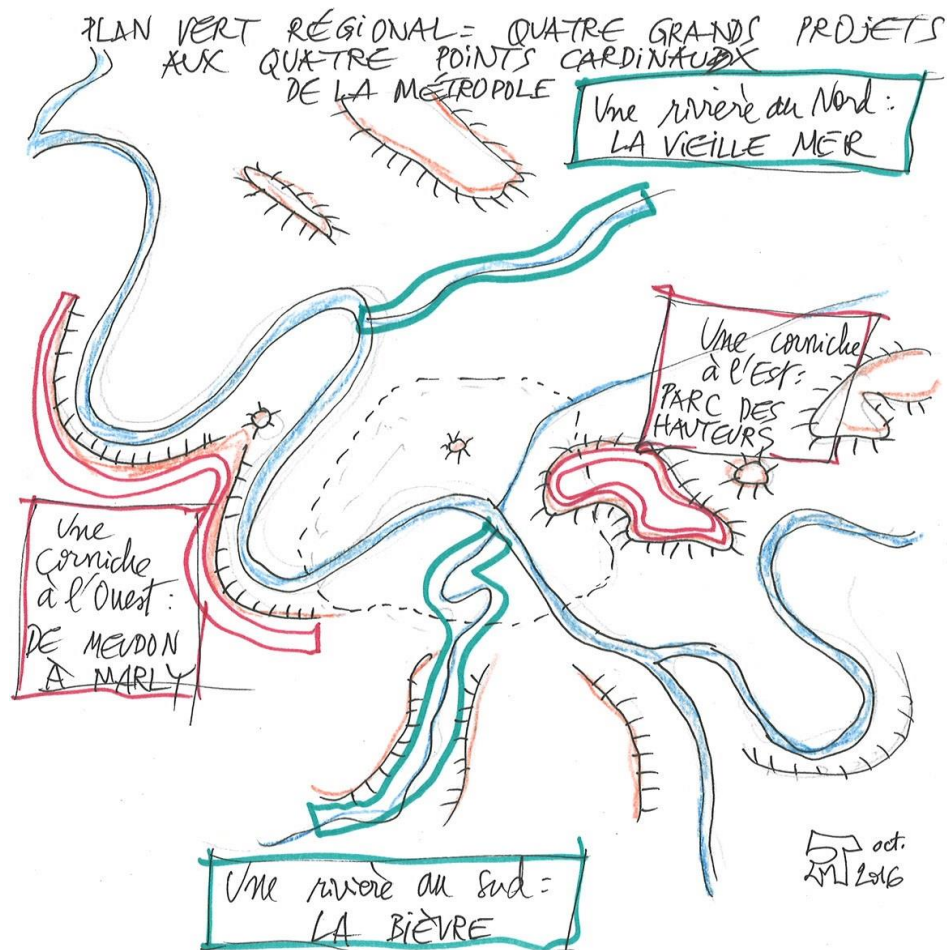 PLAN VERT RÉGIONAL = QUATRE GRANDS PROJETS
AUX QUATRE POINTS CARDINAUX
DE LA MÉTROPOLE
Une rivière au Nord :
LA VIEILLE MER
Une corniche
à l'Est :
PARC DES
HAUTEURS
Une
corniche
à l'Ouest :
DE MEUDON
À MARLY
Une rivière au Sud =
LA BIÈVRE
oct.
2016